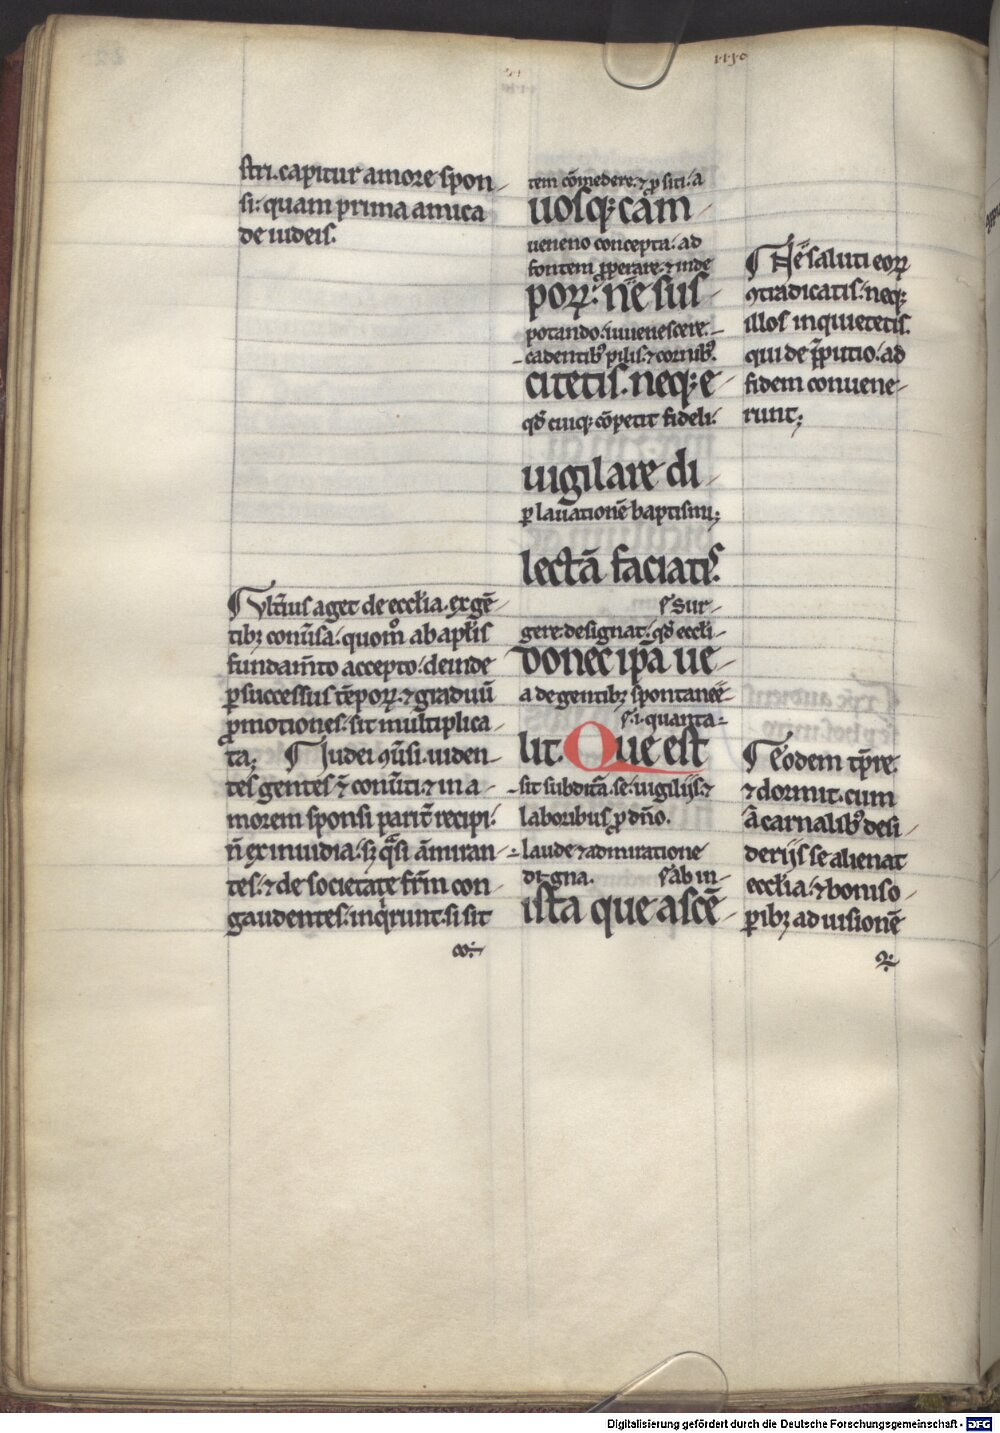 stri. capitur amore spon-
si: quam prima amica
de iudeis.
Vltiꝰ aget de eccl̃ia. ex gẽ-
tibꝫ conũsa: quom̊ ab apl̃is
fundam̃to accepto: deinde
ꝑ successus tẽpoꝝ. ⁊ graduũ
ꝓmotiones. sit multiplica-
ta; Iudei ꝯũsi. uiden-
tes gentes
morem sponsi parit̃ recipi:
ñ ex inuidia. sꝫ q̃si ãmiran-
tes: ⁊ de societate fr̃m con-
gaudentes. inq̇runt. si sit
tem cõmedere. ⁊ ꝓ siti: a
uosqꝫ cãm-
ueneno concepta: ad
fontem ꝓperare: ⁊ inde
poꝝ: nẽ sus-
potando. iuuenescere.-
-cadentibꝰ pilis. ⁊ cornibꝰ.
citetis. neqꝫ e-
qd̃ cuiqꝫ cõpetit fideli.
uigilare di-
ꝑ lauationẽ baptismi;
lectã faciatis.
s̃ sur-
gere designat: qd̃ eccl̃i-
donec ip̃a ue-
a de gentibꝫ spontanee-
s̃. i. quanta-
lit. Que est
-sit subdita. se. uigilijs. ⁊
laboribus ꝓ dño.
laude ⁊ admiratione
digna. s̃ ab in-
ista que ascẽ-
Ne saluti eoꝝ
ꝯtradicatis. neqꝫ
illos inquietetis.
qui de p̃putio. ad
fidem conuene-
runt;
Eodem tp̃re.
⁊ dormit. cum
a carnalibꝰ desi-
derijs se alienat
eccl̃ia: ⁊ bonis o-
ꝑibꝫ ad uisionẽ
Digitalisierung gefördert durch die Deutsche Forschungsgemeinschaft - DFG